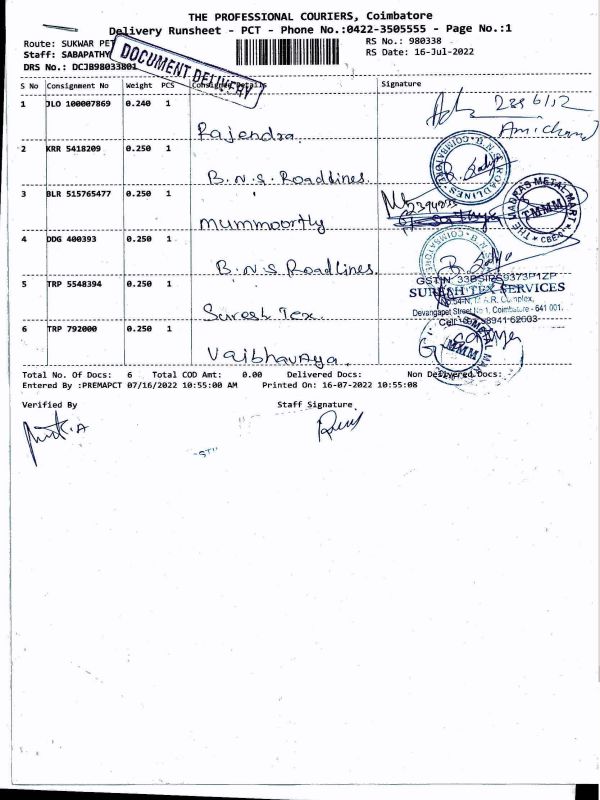 THE PROFESSIONAL COURIERS, Coimbatore
Delivery Runsheet - PCT - Phone No.:0422-3505555 - Page No.:1
Route: SUKWAR PET
RS No.: 980338
Staff: SABAPATHY
RS Date: 16-Jul-2022
DRS No.: DCJB98033801
DOCUMENT DELIVERY
S No Consignment No Weight PCS Consignee Details Signature
1 JLO 100007869 0.240 1
Rajendra
Amichand
2 KRR 5418209 0.250 1
B.N.S. Roadlines
3 BLR 515765477 0.250 1
Mummoorthy
THE MADRAS METAL MART
TMMM
CBE
4 DDG 400393 0.250 1
B.N.S Roadlines
5 TRP 5548394 0.250 1
Suresh Tex
SURESH TEX SERVICES
Devangapet Street No 1, Coimbatore - 641 001.
6 TRP 792000 0.250 1
Vaibhavaya
Total No. Of Docs: 6 Total COD Amt: 0.00 Delivered Docs: Non Delivered Docs:
Entered By :PREMAPCT 07/16/2022 10:55:00 AM Printed On: 16-07-2022 10:55:08
Verified By Staff Signature